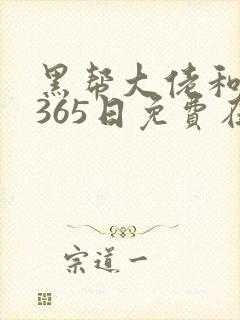 黑帮大佬和
365日免費
宗道一